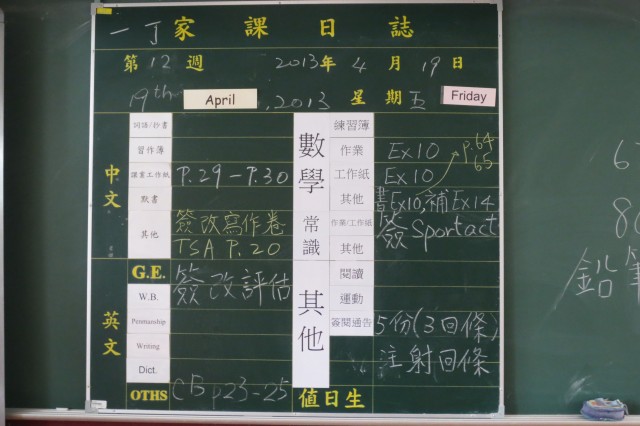 一丁家課日誌
第12週 2013年4月19日
19th April, 2013 星期五 Friday
中文
詞語/抄書
習作簿
課堂工作紙 P.29-P.30
默書
其他 簽改寫作卷
TSA P.20
英文
G.E. 簽改評估
W.B.
Penmanship
Writing
Dict.
OTHS CB p23-25
數學
練習簿
作業 Ex10 P.64
工作紙 Ex10 65
其他 書Ex10,補Ex14
常識
作業/工作紙 簽Sportact
其他
其他
閱讀
運動
簽閱通告 5份(3回條)
注射回條
值日生
鉛筆